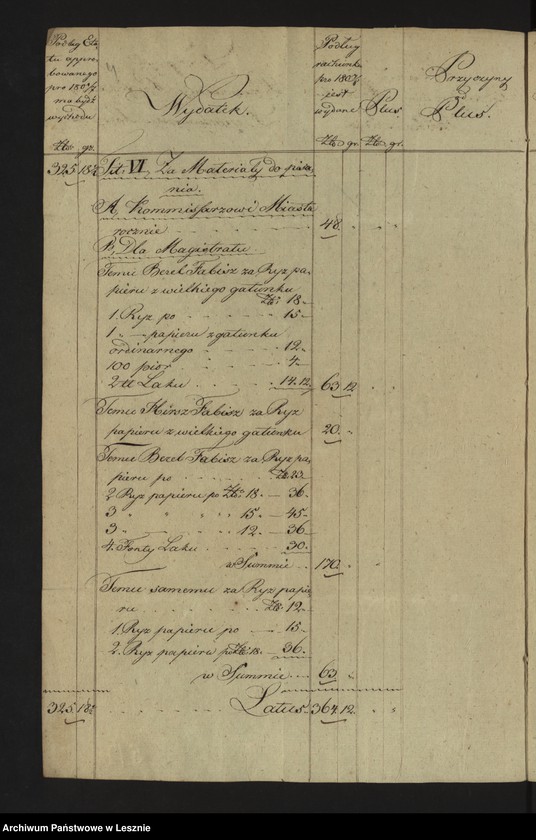 Podług Eta-
tu appro-
bowanego
pro 180 6/7
ma bydź
wyiścia
Złt. gr.
Wydatek.
Podług
rachunku
pro 180 6/7
jest
wydane
Złt. gr.
Plus.
Złt. gr.
Przyczyny
Plus.
325. 18 Tit: VI. Za Materiały do pisa-
nia.
A, Kommissarzowi Miasta
rocznie 48.
B, Dla Magistratu
Temu Berel Fabisz za Ryz pa-
pieru z wielkiego gatunku
Złt: 18.
1. Ryz po 15.
1 — papieru z gatunku
ordinarnego 12.
100 piór 4.
2 tt Laku 14. 12. 63. 12
Temu Hirsz Fabisz za Ryz
papieru z wielkiego gatunku 20.
Temu Berel Fabisz za Ryz pa-
pieru po Złt. 23.
2 Ryz papieru po Złt. 18. — 36.
3 " " " 15. — 45.
3 " " " 12. — 36
4. Fonty Laku 30.
w Summie 170.
Temu samemu za Ryz papie-
ru Złt. 12
1. Ryz papieru po — 15.
2. Ryz papieru po Złt. 18. — 36.
w Summie 63.
325. 18 Latus 364. 12.
Archiwum Państwowe w Lesznie